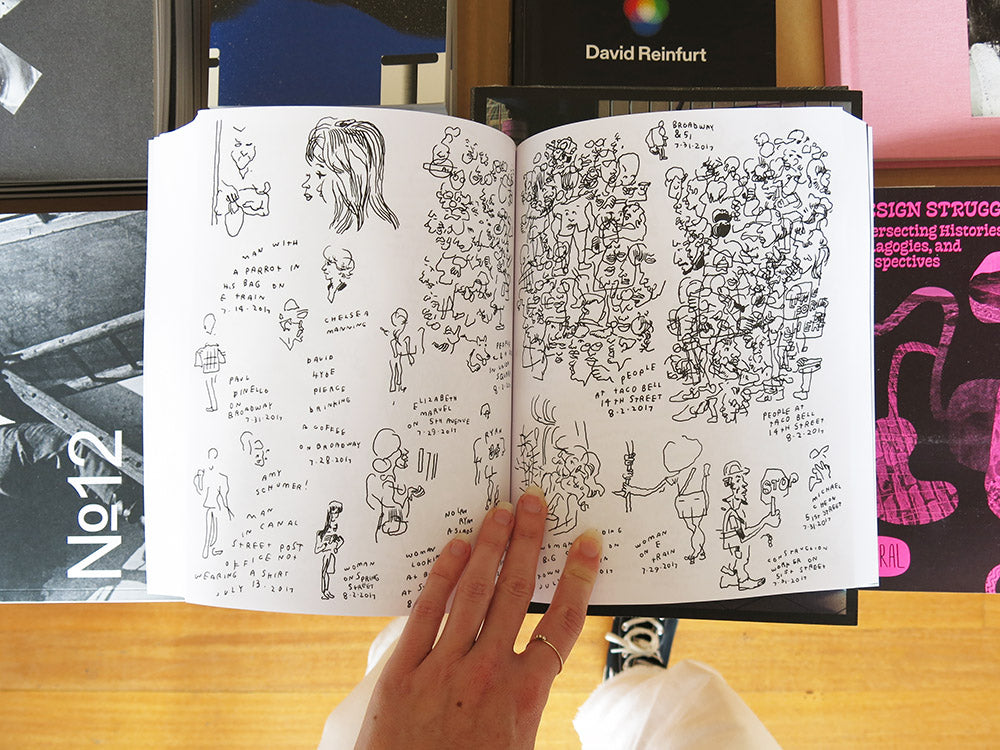 David Reinfurt
SIGN STRUGG
ersecting Histories
agogies, and
spectives
No12
RAL
MAN WITH
A PARROT IN
HIS BAG ON
E TRAIN
7.19.2017
CHELSEA
MANNING
PAUL
DINELLO
ON
BROADWAY
7.31.2017
DAVID
HYDE
PIERCE
DRINKING
A COFFEE
ON BROADWAY
7.28.2017
ELIZABETH
MARVEL
ON 5TH AVENUE
7.29.2017
PEOPLE
8.2.2017
AMY
SCHUMER!
MAN
IN CANAL
STREET POST
OFFICE NOT
WEARING A SHIRT
JULY 13.2017
WOMAN
ON SPRING
STREET
8.2.2017
WOMAN
LOOKI
AT
RYAN
NOLAN
RYAN
BROADWAY
& 51
7.31.2017
PEOPLE
AT TACO BELL
14TH STREET
8.2.2017
PEOPLE AT
TACO BELL
14TH STREET
8.2.2017
STOP
WOMAN
ON TRAIN
7.29.2017
MICHAEL
51ST STREET
7.31.2017
CONSTRUCTION
WORKER ON
51ST STREET
7.31.2017